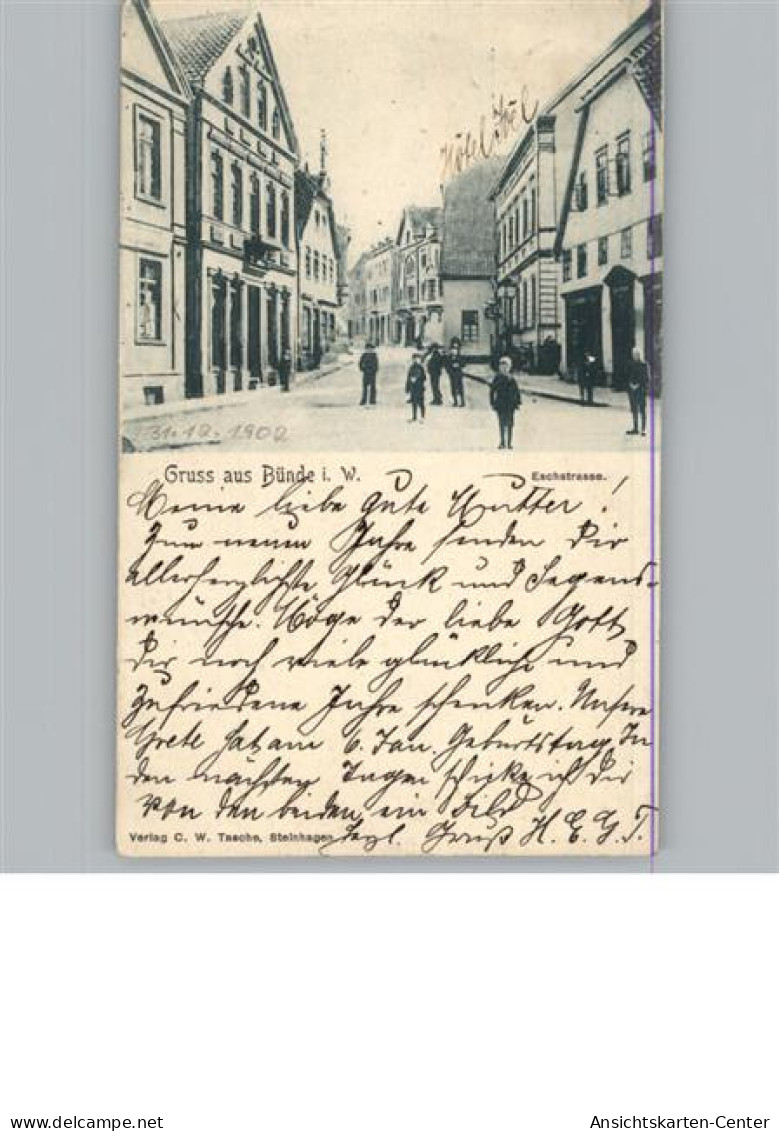 Hôtel
31.12.1902
Gruss aus Bünde i. W.
Eschstrasse.
Meine liebe gute Mutter!
Zum neuen Jahre senden Dir
allerherzlichste Glück und Segens-
wünsche. Möge der liebe Gott
Dir noch viele glückliche und
zufriedene Jahre schenken. Unsere
Grete hat am 6. Jan. Geburtstag. In
den nächsten Tagen schicke ich Dir
von den beiden ein Bild
Herzl. Gruß H. E. G. T.
Verlag C. W. Tasche, Steinhagen
delcampe.net
Ansichtskarten-Center